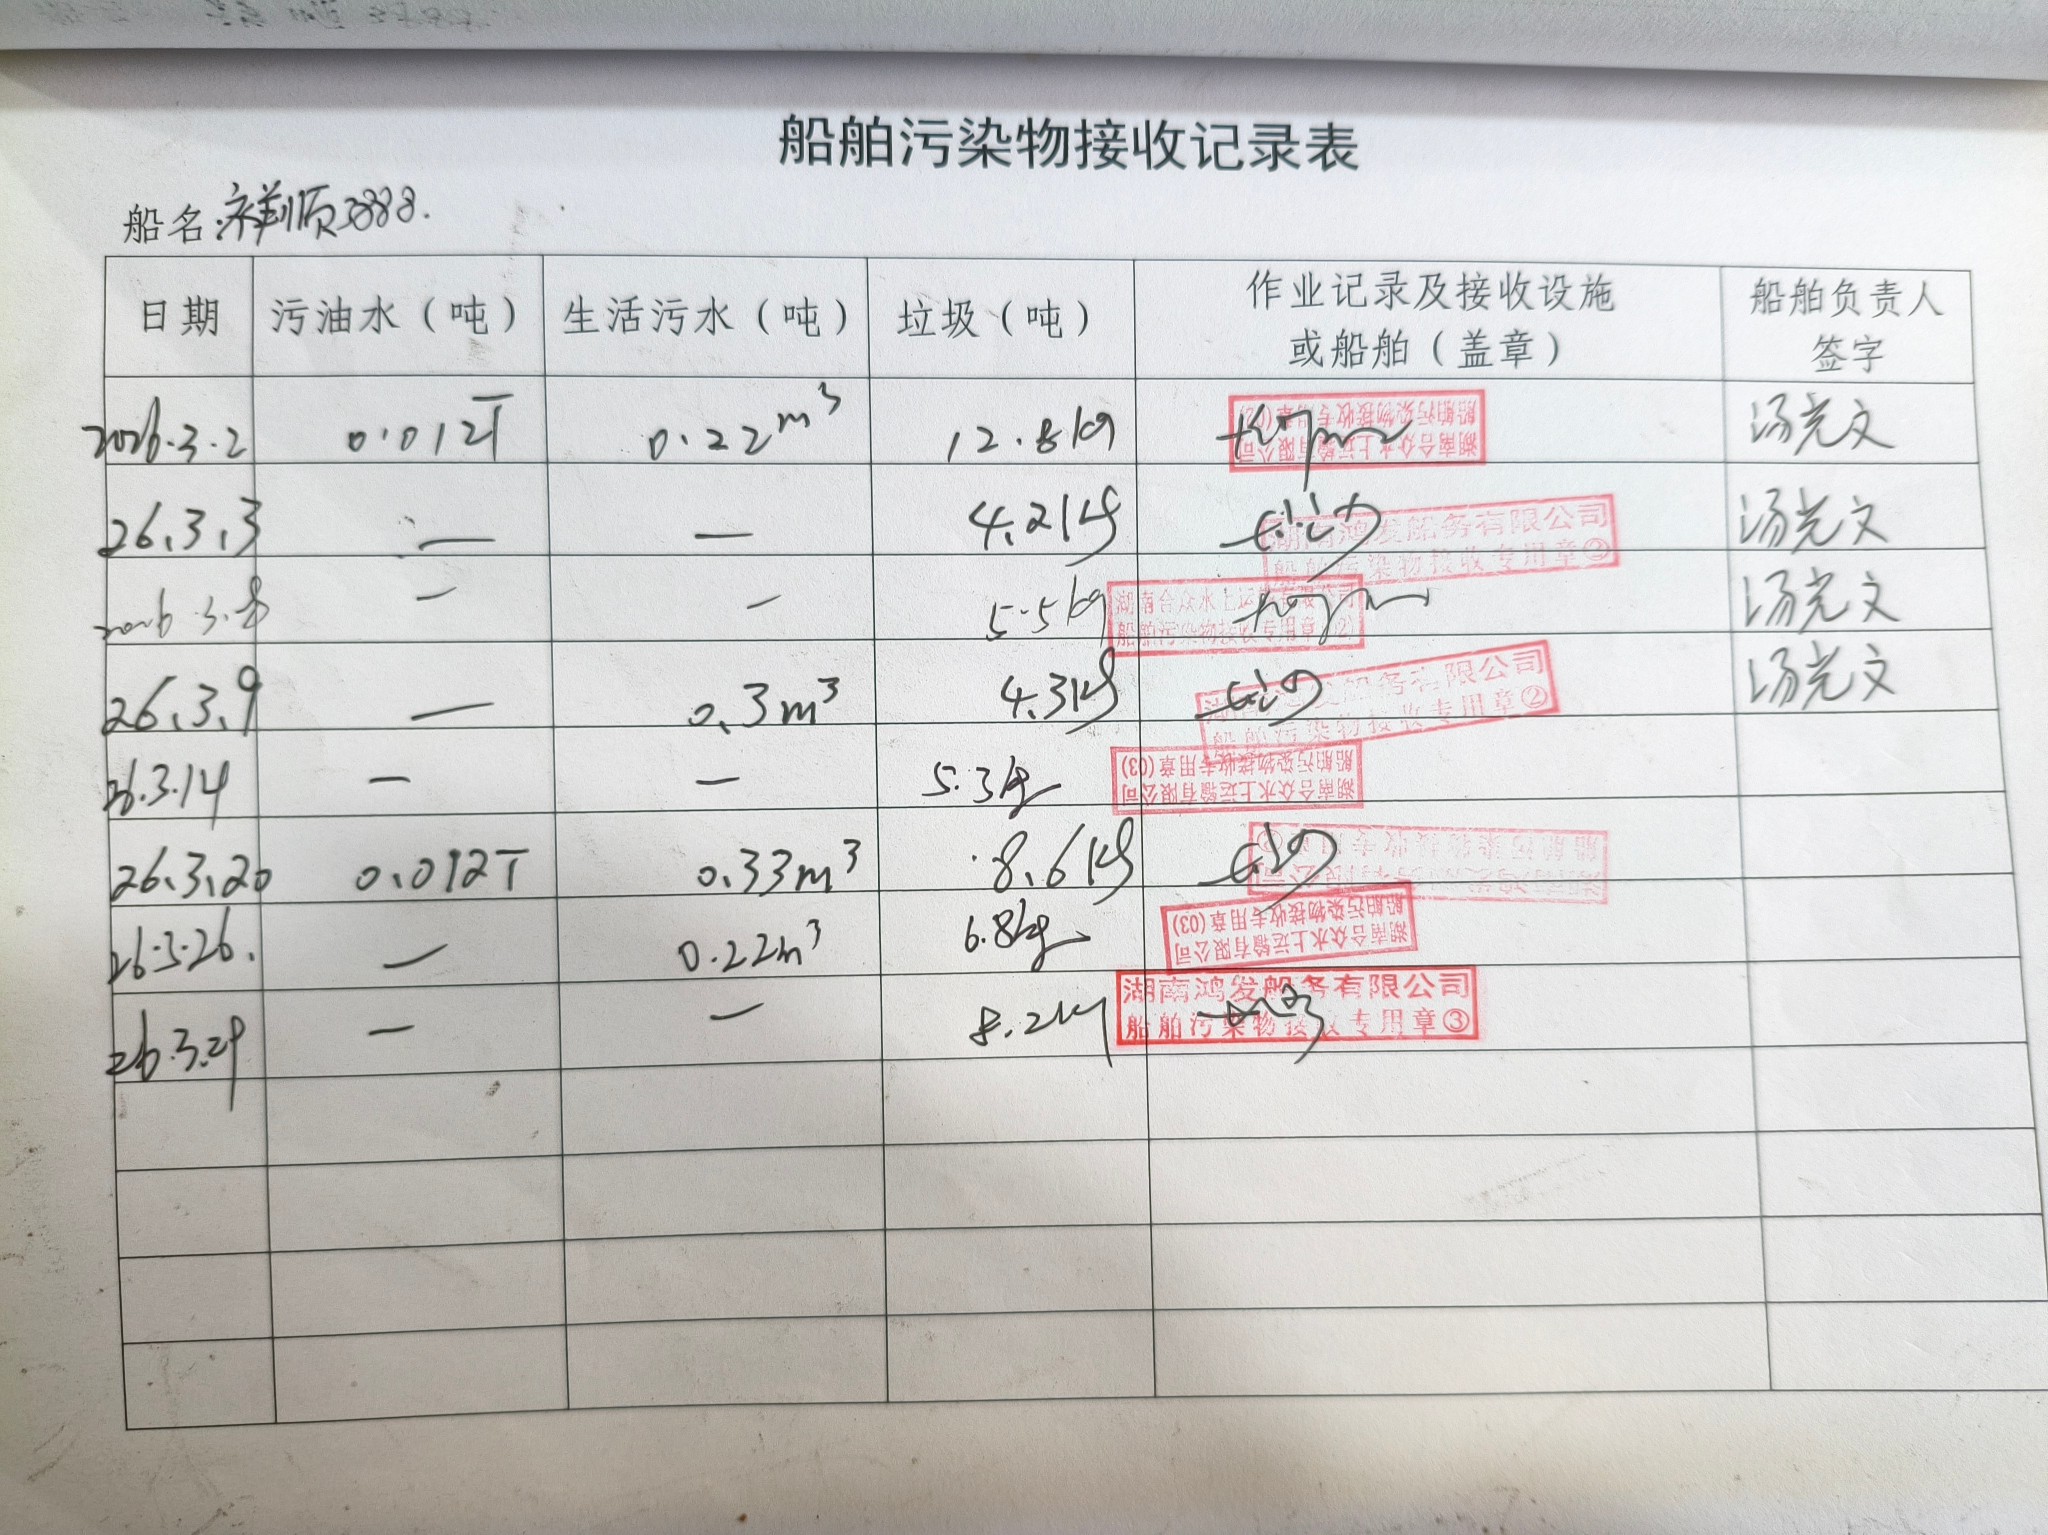 船舶污染物接收记录表
船名:祥顺3888.
日期 污油水（吨） 生活污水（吨） 垃圾（吨） 作业记录及接收设施或船舶（盖章） 船舶负责人签字
2026.3.2 0.012T 0.22m³ 12.8kg 湖南合众水上运输有限公司 船舶污染物接收专用章 汤光文
26.3.3 — — 4.2kg 湖南鸿发船务有限公司 船舶污染物接收专用章② 汤光文
2026.3.8 — — 5.5kg 湖南合众水上运输有限公司 船舶污染物接收专用章(02) 汤光文
26.3.9 — 0.3m³ 4.3kg 湖南鸿发船务有限公司 船舶污染物接收专用章② 汤光文
26.3.14 — — 5.3kg 湖南合众水上运输有限公司 船舶污染物接收专用章(03)
26.3.20 0.012T 0.33m³ 8.6kg 船舶污染物接收专用章②
26.3.26. — 0.22m³ 6.8kg 湖南合众水上运输有限公司 船舶污染物接收专用章(03)
26.3.29 — — 8.2kg 湖南鸿发船务有限公司 船舶污染物接收专用章③